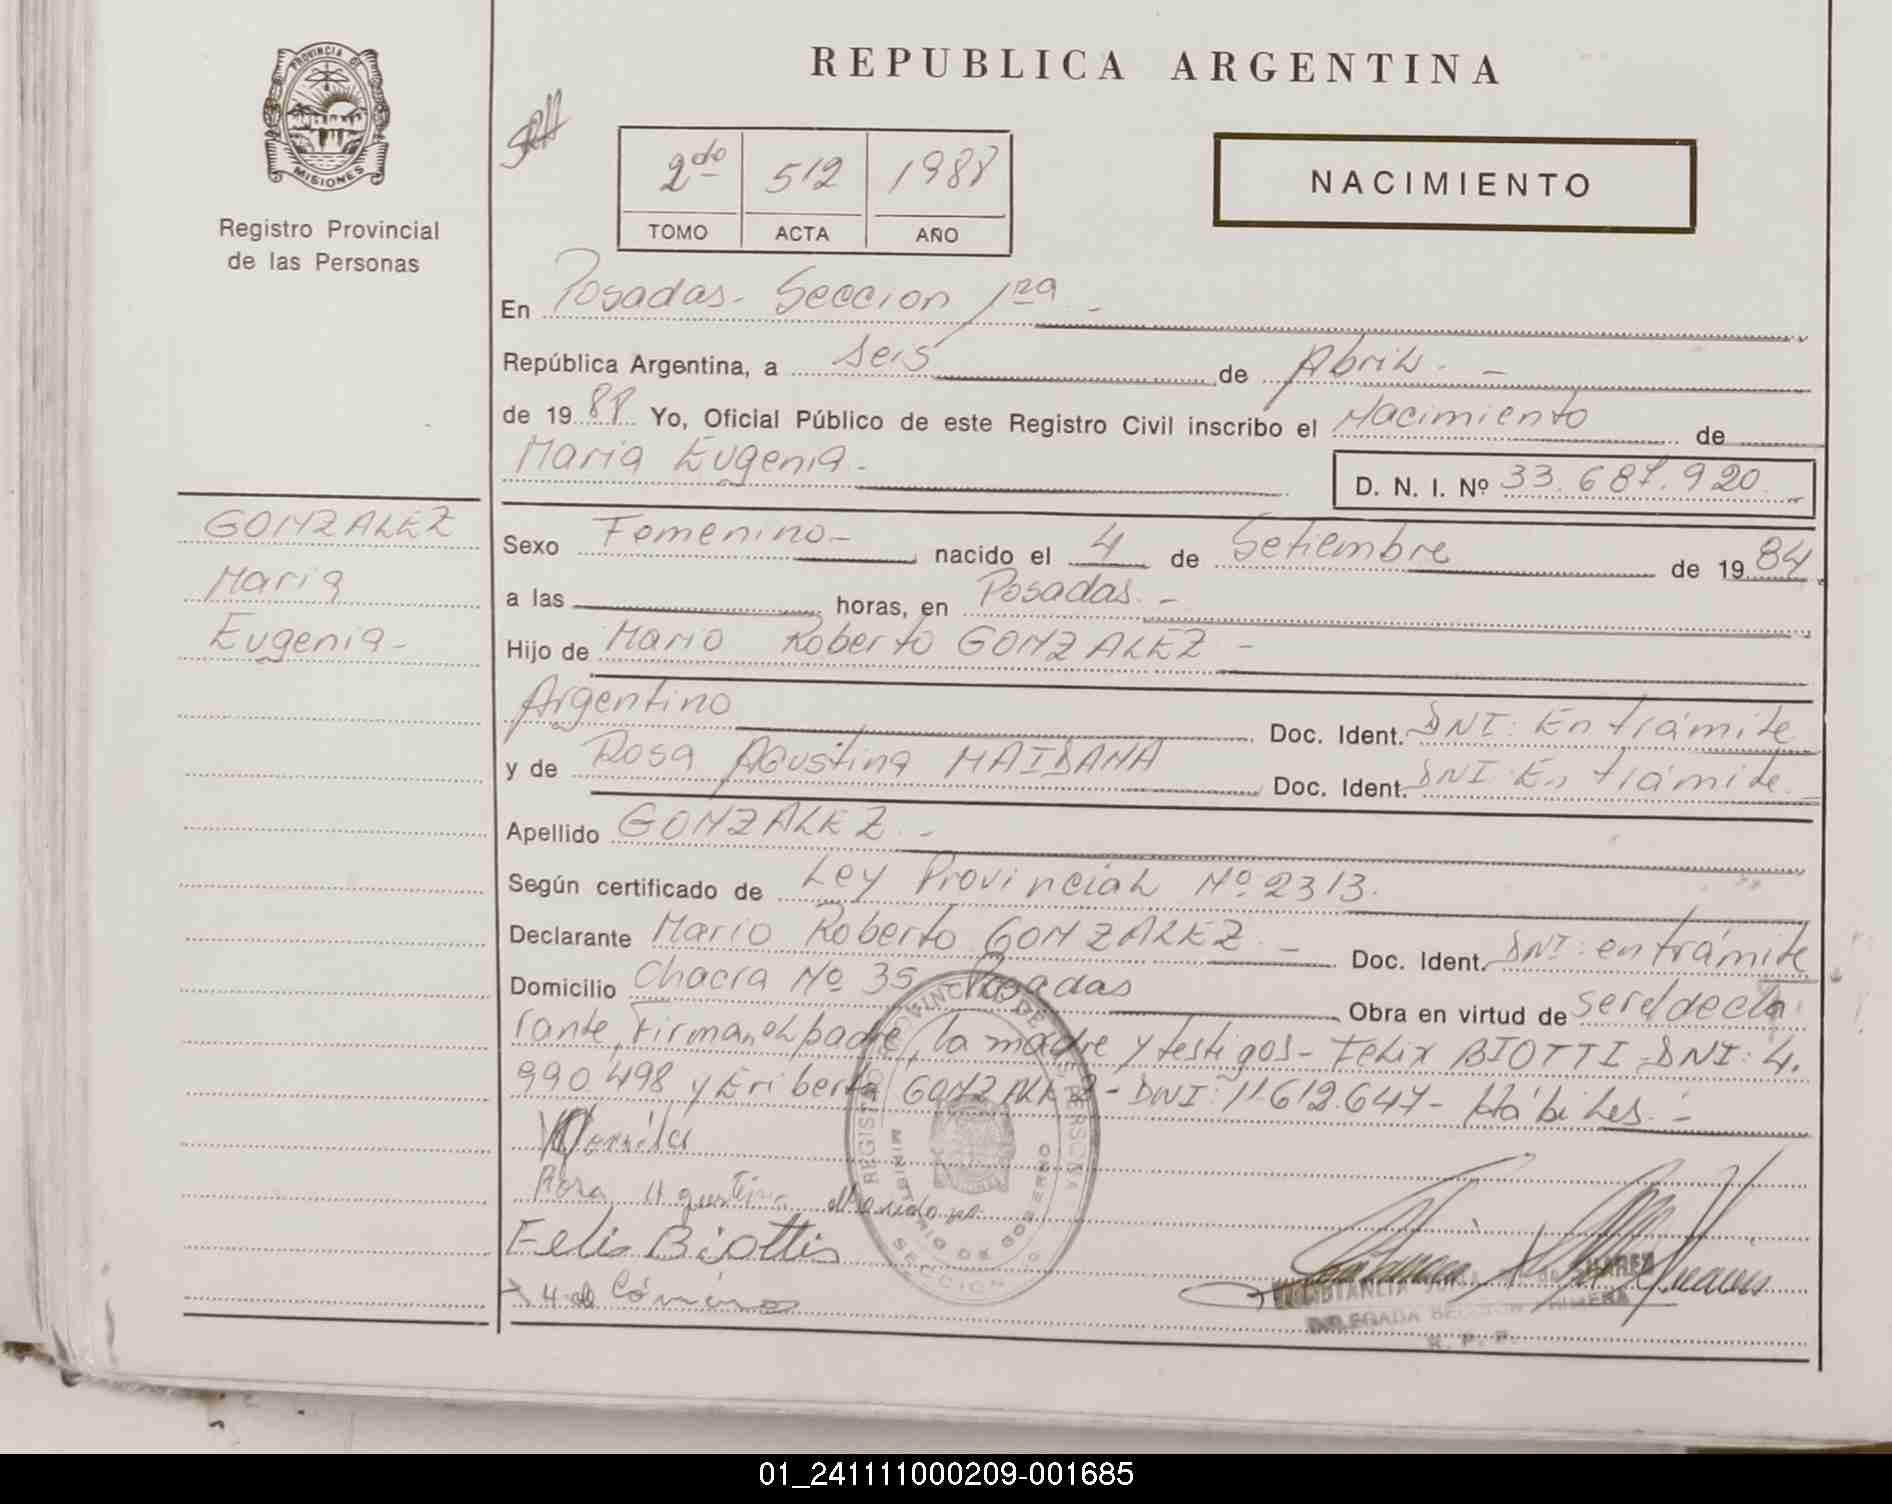 PROVINCIA DE
MISIONES
Registro Provincial
de las Personas
REPUBLICA ARGENTINA
2do 512 1988
TOMO ACTA AÑO
NACIMIENTO
En Posadas- Seccion 1ra -
República Argentina, a Seis de Abril. -
de 1988 Yo, Oficial Público de este Registro Civil inscribo el Nacimiento de
Maria Eugenia.-
D. N. I. Nº 33.687.920
GONZALEZ
Maria
Eugenia-
Sexo Femenino- nacido el 4 de Setiembre de 1984
a las horas, en Posadas. -
Hijo de Mario Roberto GONZALEZ -
Argentino Doc. Ident. DNI: En trámite
y de Rosa Agustina MAIDANA Doc. Ident. DNI: En trámite.
Apellido GONZALEZ. -
Según certificado de Ley Provincial Nº 2313.
Declarante Mario Roberto GONZALEZ. - Doc. Ident. DNI: en trámite
Domicilio Chacra Nº 35 Posadas Obra en virtud de ser el decla
rante, Firman el padre, la madre y testigos- Felix BIOTTI DNI: 4.
990.498 y Eriberto GONZALEZ- DNI: 11.612.647- Hábiles.-
Rosa Agustina Maidana
REGISTRO PROVINCIAL DE LAS PERSONAS
MINISTERIO DE GOBIERNO
SECCION
Felix Biottis
DELEGADA SECCION PRIMERA
R. P. P.
01_241111000209-001685